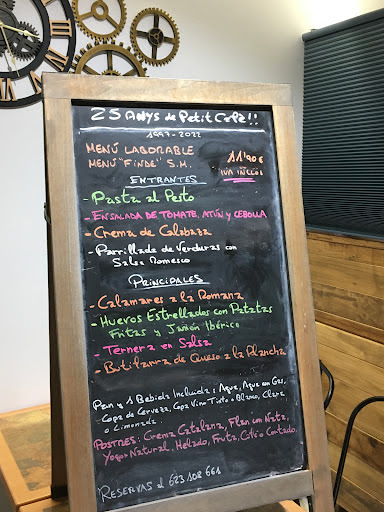 25 Anys de Petit Cafè!!
1997-2022
MENÚ LABORABLE
MENÚ "FINDE" S.M.
11'90€
IVA INCLÒS
ENTRANTES
- Pasta al Pesto
- ENSALADA DE TOMATE, ATÚN y CEBOLLA
- Crema de Calabaza
- Parrillada de Verduras con
Salsa Romesco
PRINCIPALES
- Calamares a la Romana
- Huevos Estrellados con Patatas
Fritas y Jamón Ibérico
- Ternera en Salsa
- Butifarra de Queso a la Plancha
Pan y 1 Bebida Incluida: Agua, Agua con Gas,
Copa de Cerveza, Copa Vino Tinto o Blanco, Clara
o Limonada
POSTRES: Crema Catalana, Flan con Nata,
Yogur Natural, Helado, Fruta, Café o Cortado.
RESERVAS al 623 108 661